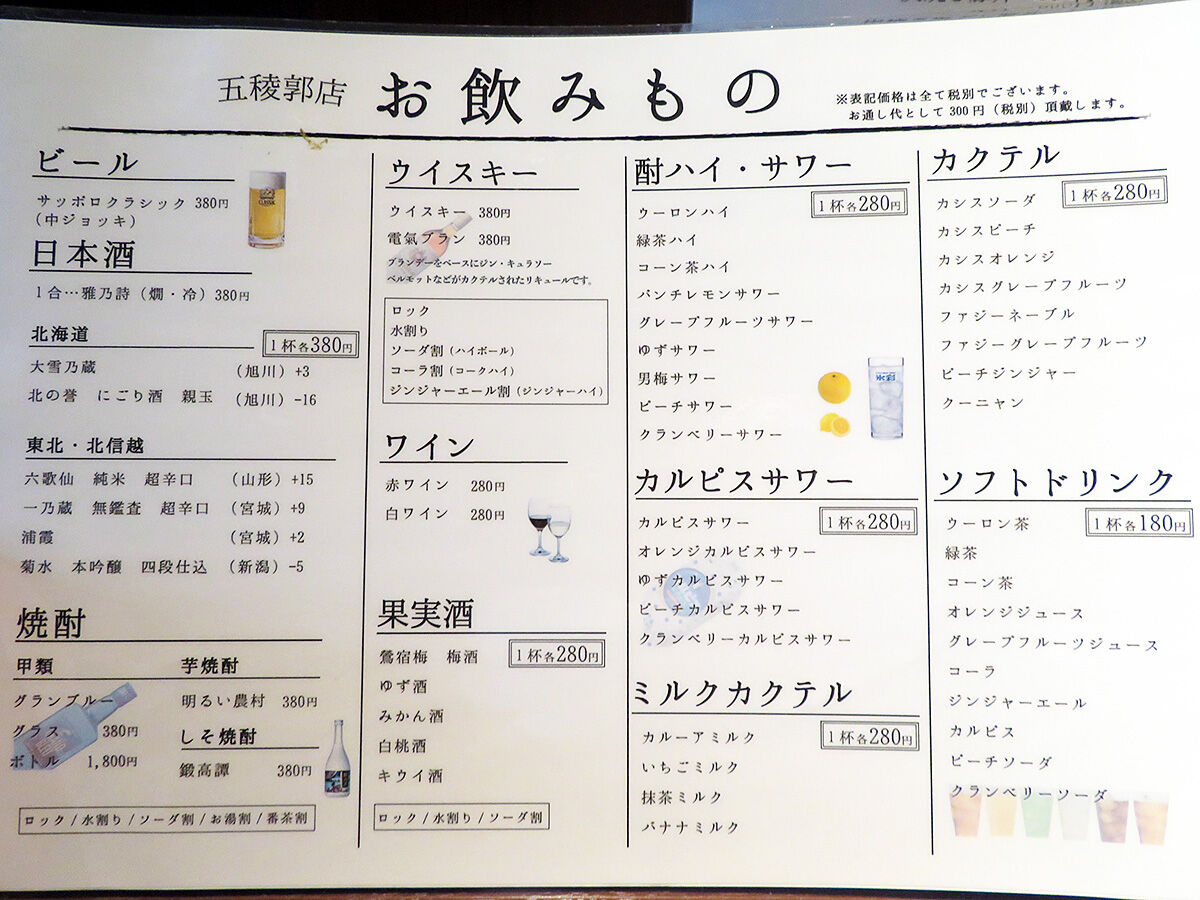 五稜郭店 お飲みもの
※表記価格は全て税別でございます。
お通し代として300円（税別）頂戴します。
ビール
サッポロクラシック 380円
（中ジョッキ）
日本酒
1合…雅乃詩（燗・冷）380円
北海道
1杯各380円
大雪乃蔵 （旭川）+3
北の誉 にごり酒 親玉 （旭川）-16
東北・北信越
六歌仙 純米 超辛口 （山形）+15
一乃蔵 無鑑査 超辛口 （宮城）+9
浦霞 （宮城）+2
菊水 本吟醸 四段仕込 （新潟）-5
焼酎
甲類
グランブルー
グラス 380円
ボトル 1,800円
芋焼酎
明るい農村 380円
しそ焼酎
鍛高譚 380円
ロック/水割り/ソーダ割/お湯割/番茶割
ウイスキー
ウイスキー 380円
電氣ブラン 380円
ブランデーをベースにジン・キュラソー
ベルモットなどがカクテルされたリキュールです。
ロック
水割り
ソーダ割（ハイボール）
コーラ割（コークハイ）
ジンジャーエール割（ジンジャーハイ）
ワイン
赤ワイン 280円
白ワイン 280円
果実酒
1杯各280円
鶯宿梅 梅酒
ゆず酒
みかん酒
白桃酒
キウイ酒
ロック/水割り/ソーダ割
酎ハイ・サワー
1杯各280円
ウーロンハイ
緑茶ハイ
コーン茶ハイ
パンチレモンサワー
グレープフルーツサワー
ゆずサワー
男梅サワー
ピーチサワー
クランベリーサワー
氷彩
カルピスサワー
1杯各280円
カルピスサワー
オレンジカルピスサワー
ゆずカルピスサワー
ピーチカルピスサワー
クランベリーカルピスサワー
ミルクカクテル
1杯各280円
カルーアミルク
いちごミルク
抹茶ミルク
バナナミルク
カクテル
1杯各280円
カシスソーダ
カシスピーチ
カシスオレンジ
カシスグレープフルーツ
ファジーネーブル
ファジーグレープフルーツ
ピーチジンジャー
クーニャン
ソフトドリンク
1杯各180円
ウーロン茶
緑茶
コーン茶
オレンジジュース
グレープフルーツジュース
コーラ
ジンジャーエール
カルピス
ピーチソーダ
クランベリーソーダ